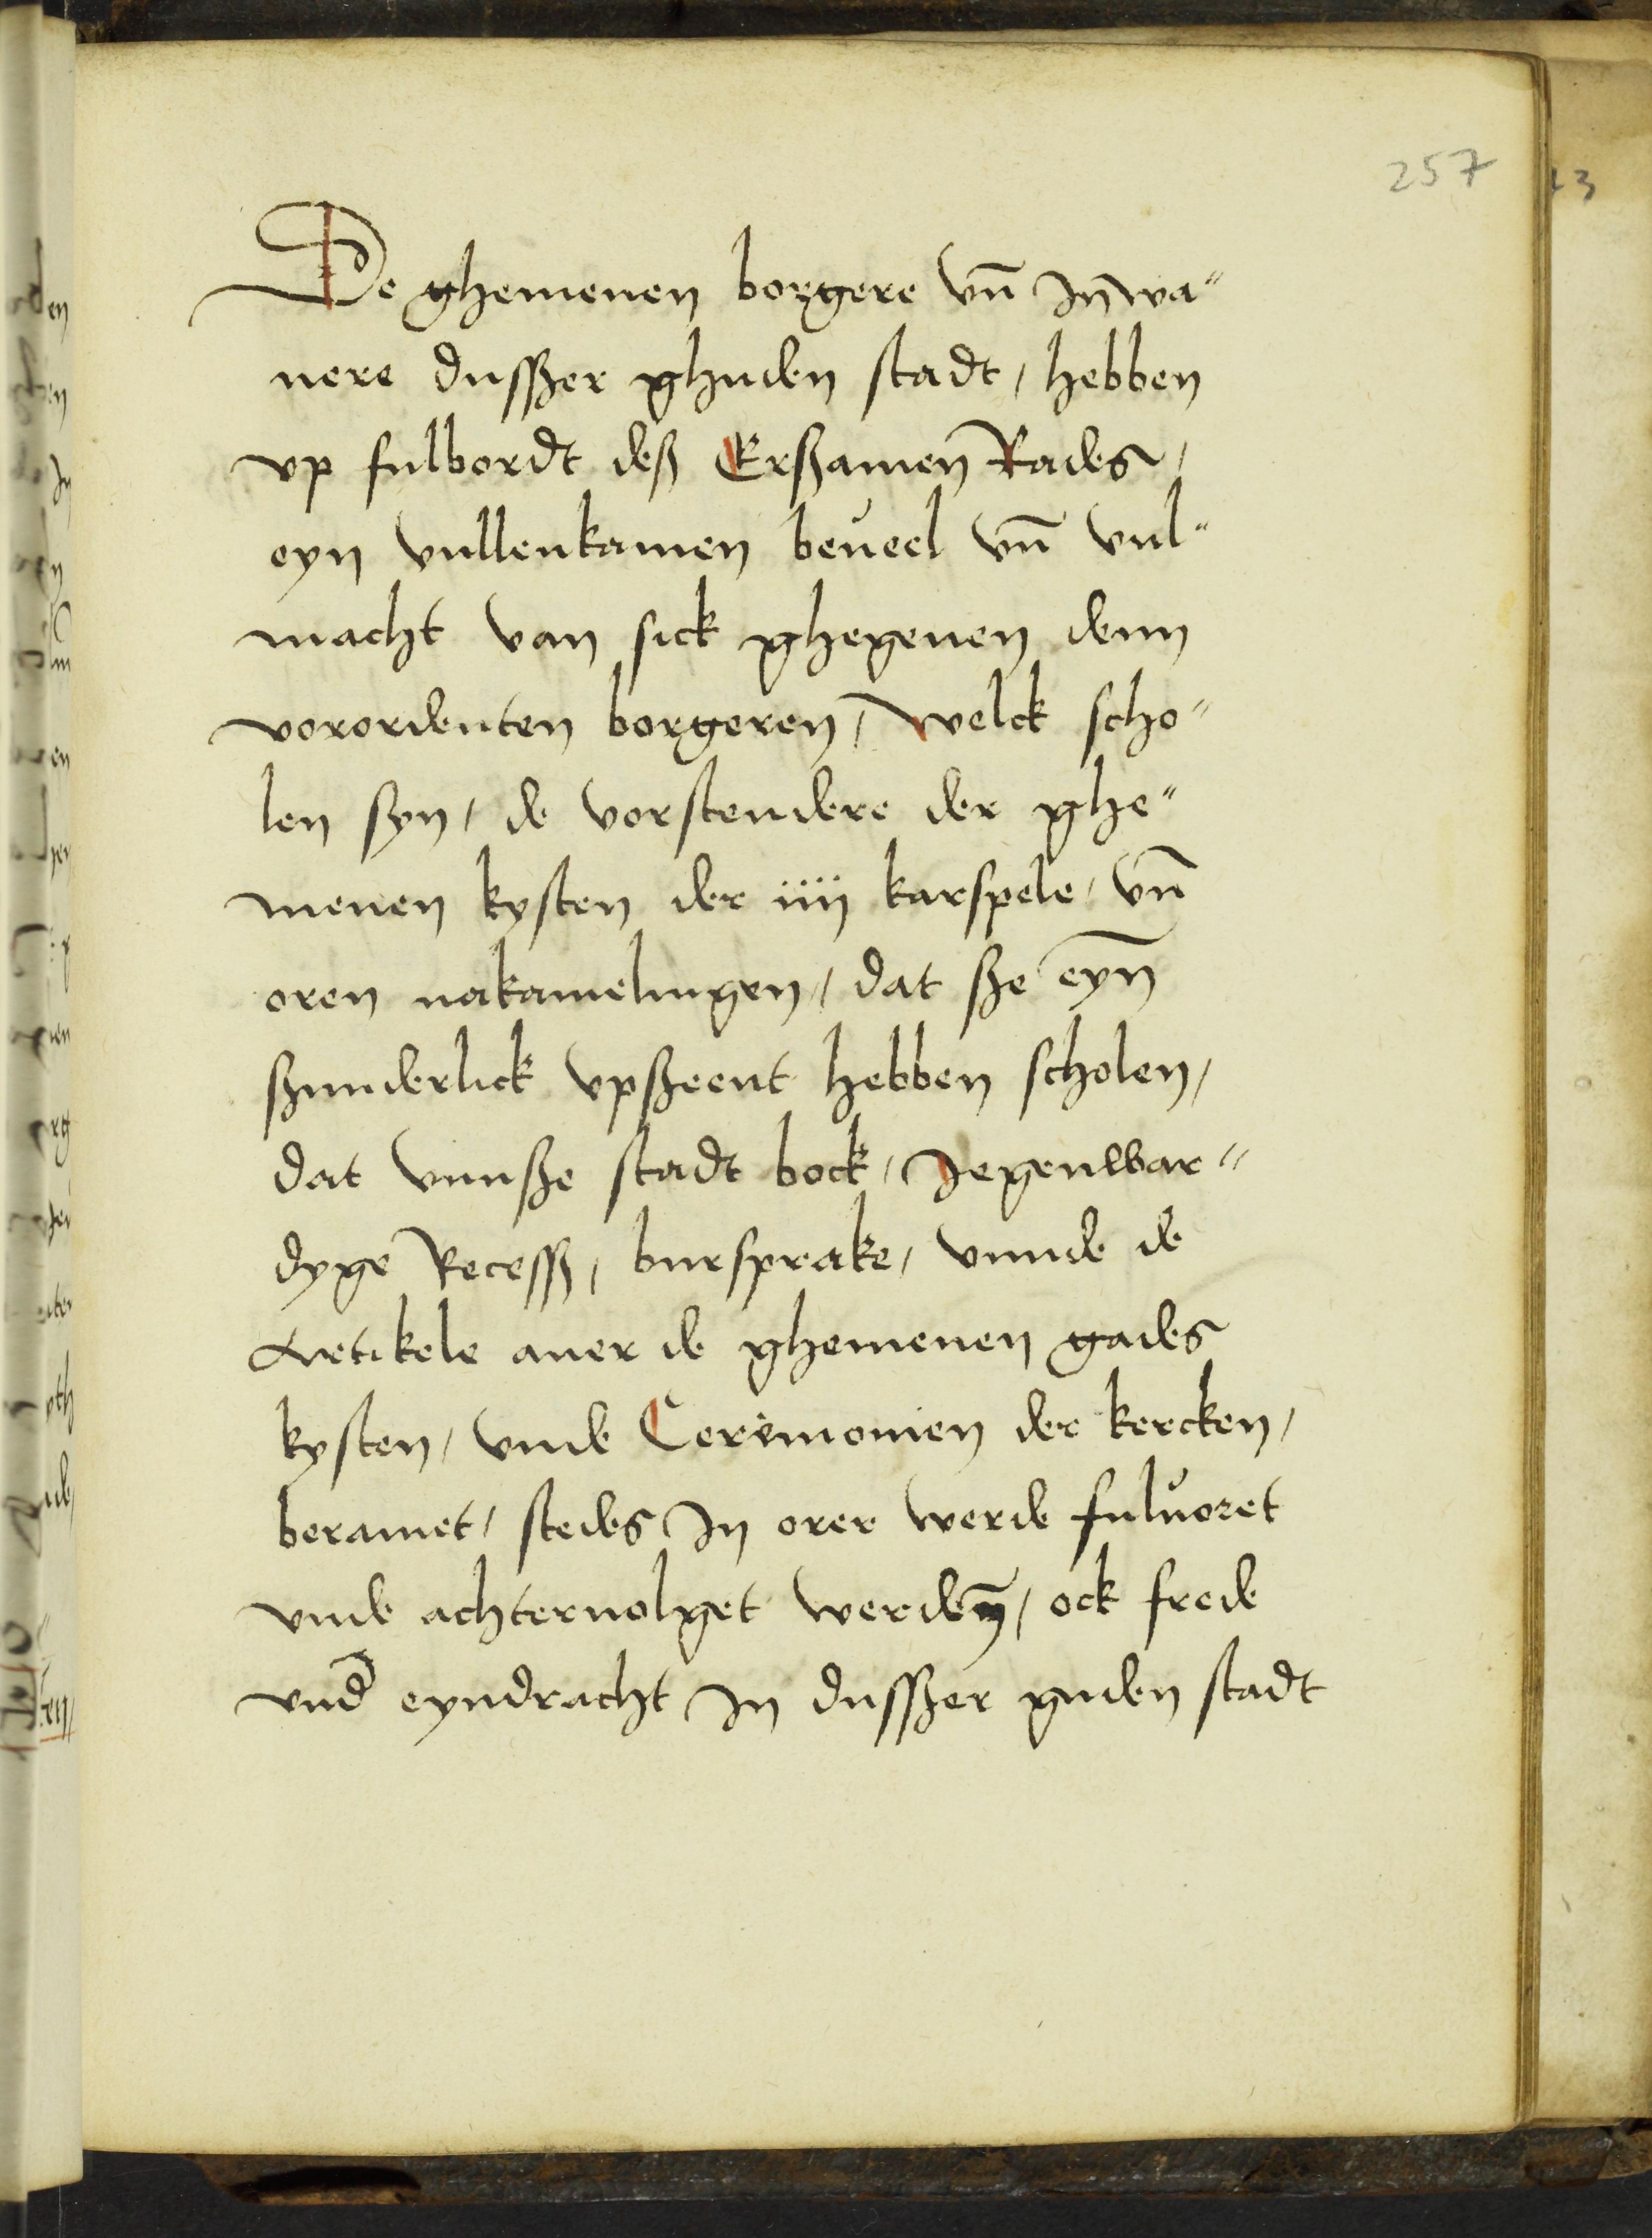 257
De ghemenen borgere vn̄ Inwa"
nere dussßer ghuden stadt, hebben
vp fulbordt deß Erßamen Rades,
eyn vullenkamen beueel vn̄ vul"
macht van sick ghegeuen denn
vorordenten borgeren, welck scho"
len syn, de vorstendere der ghe"
menen kysten der iiij karspele, vn̄
oren nakamelingen, dat ße eyn̄
ßunderlick vpßeent hebben scholen,
dat vnnße stadt bock, Jegenwar"
dyge Recesß, bursprake, vnnde de
Artikele auer de ghemenen gades
kysten, vnde Ceremonien der kercken,
beramet, stedes In orer werde fuluoret
vnde achteruolget werden, ock frede
vnd̄ eyndracht In dussßer guden stadt